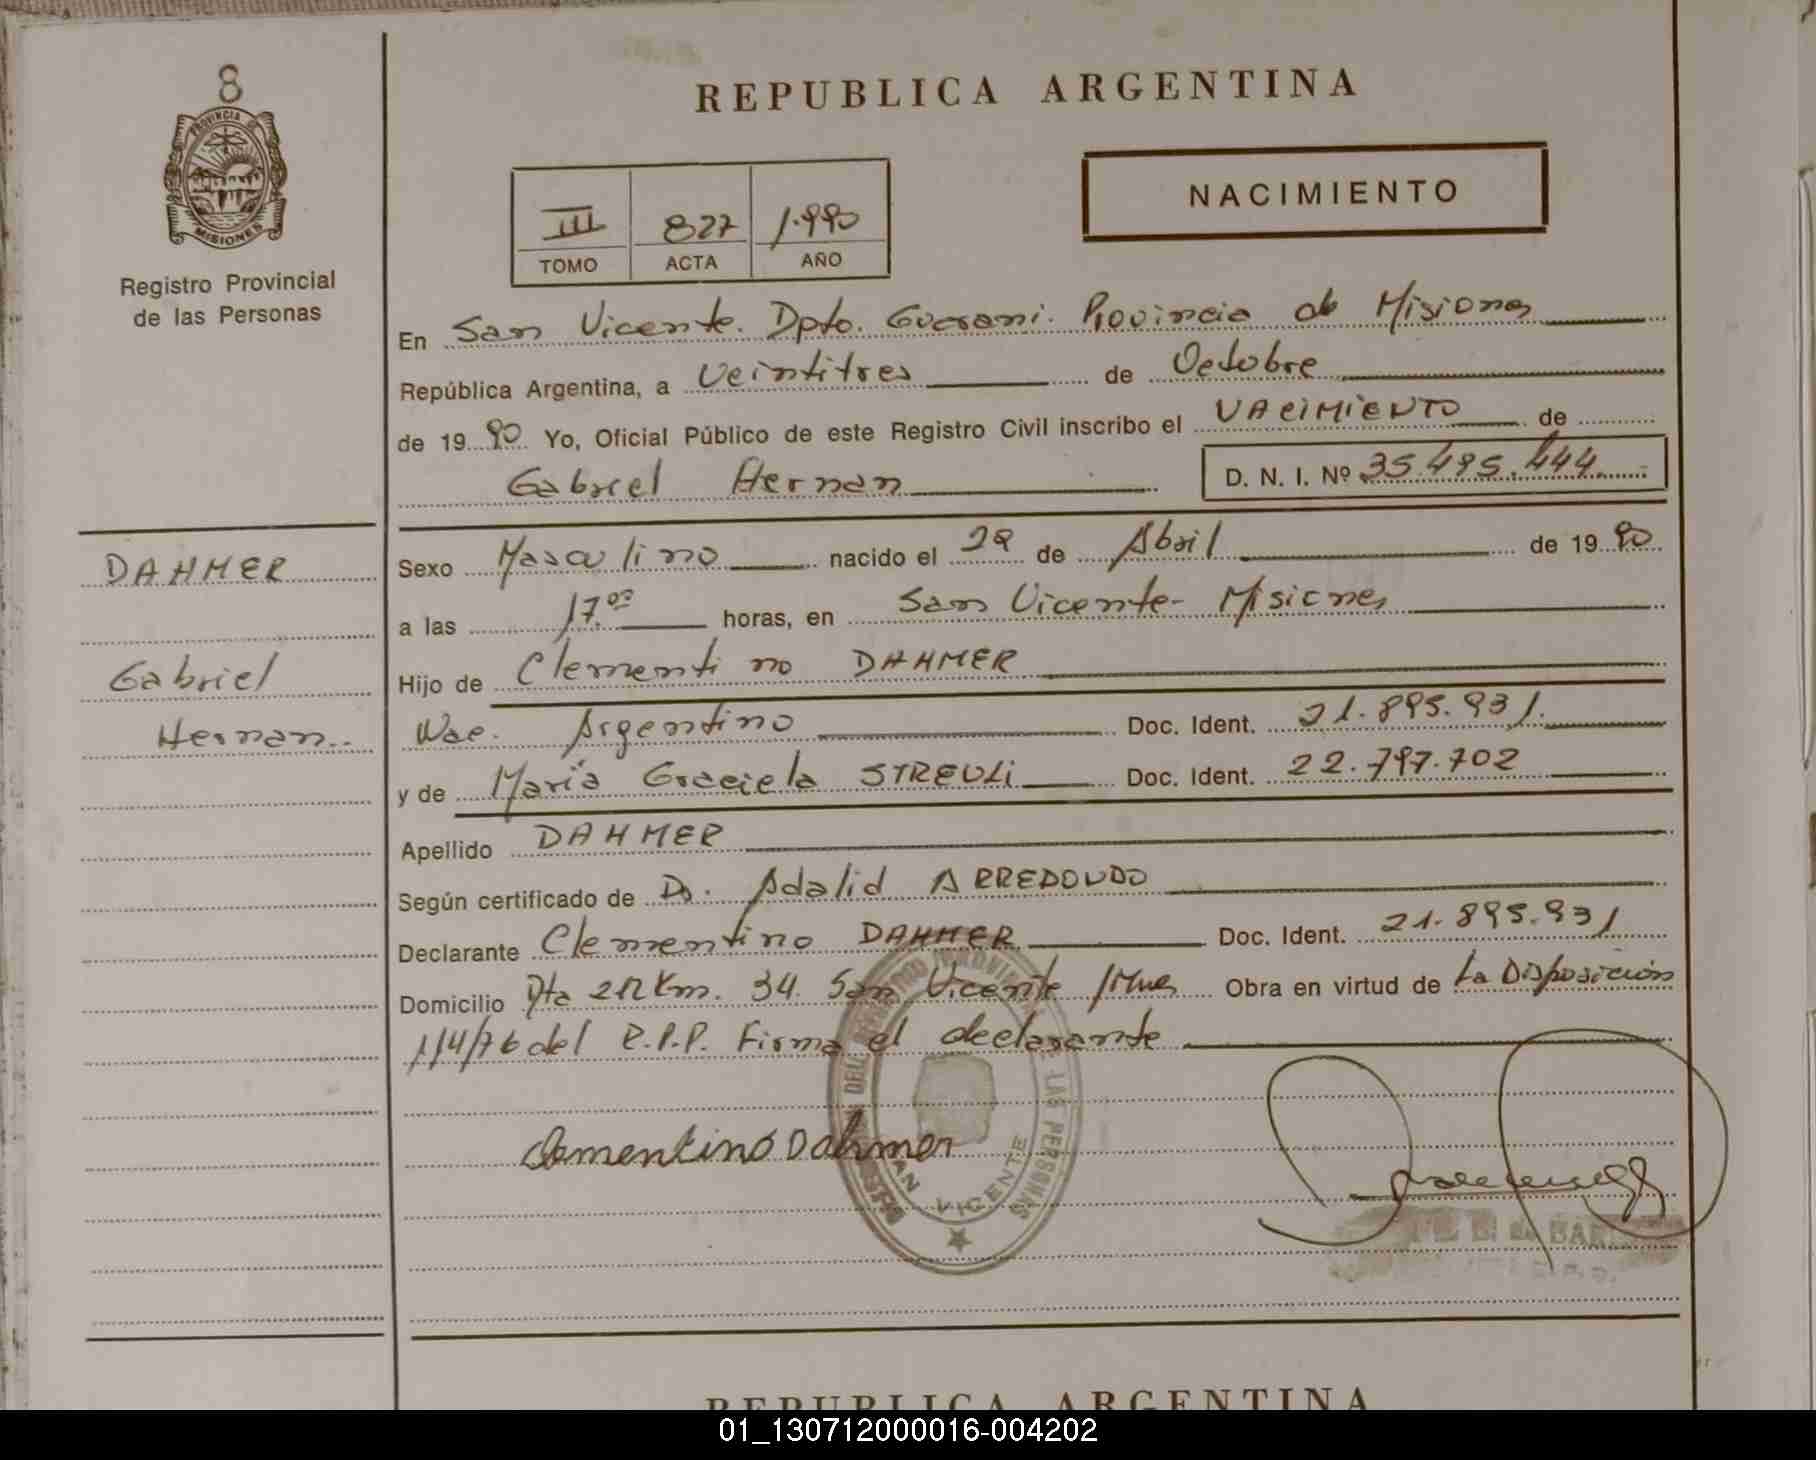 8
PROVINCIA DE
MISIONES
Registro Provincial
de las Personas
DAHMER
Gabriel
Hernan..
REPUBLICA ARGENTINA
NACIMIENTO
III 827 1.990
TOMO ACTA AÑO
En San Vicente. Dpto. Guarani. Provincia de Misiones
República Argentina, a Veintitres de Octobre
de 1990 Yo, Oficial Público de este Registro Civil inscribo el NACIMIENTO de
Gabriel Hernan D. N. I. Nº 35.495.444
Sexo Masculino nacido el 29 de Abril de 1990
a las 17.00 horas, en San Vicente- Misiones
Hijo de Clementino DAHMER
Nac. Argentino Doc. Ident. 21.895.931.
y de María Graciela STREULi Doc. Ident. 22.797.702
Apellido DAHMER
Según certificado de Dr. Adalid ARREDONDO
Declarante Clementino DAHMER Doc. Ident. 21.895.931
Domicilio Rta 212 Km. 34. San Vicente /Mnes Obra en virtud de La Disposición
114/76 del R.P.P. Firma el declarante
Clementino Dahmer
DEL REGISTRO PROVINCIAL DE LAS PERSONAS
SAN VICENTE
REPUBLICA ARGENTINA
01_130712000016-004202